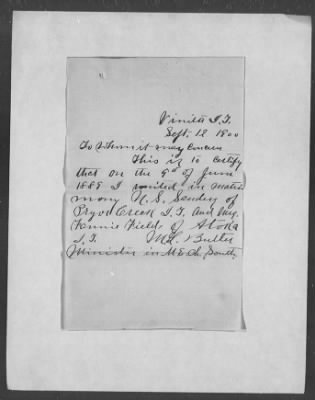 Vinita I.T.
Sept. 12 1900
To Whom it may Concern
This is to certify
that on the 9th of June
1889 I united in matri
mony N. S. Sanders of
Pryor Creek I.T. and
Fannie Fields of Atoka
I.T. M.L. Butler
Minister in M.E.Ch. South